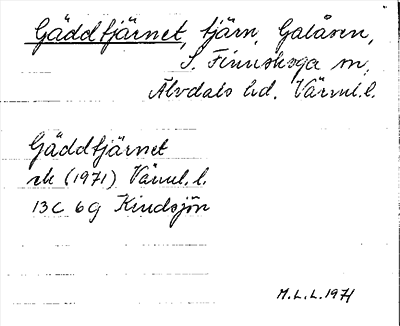 Gäddtjärnet, tjärn, Galåsen,
S. Finnskoga sn,
Älvdals hd. Värml.l.
Gäddtjärnet
ek (1971) Värml. l.
13C 6g Kindsjön
M.L.L. 1971